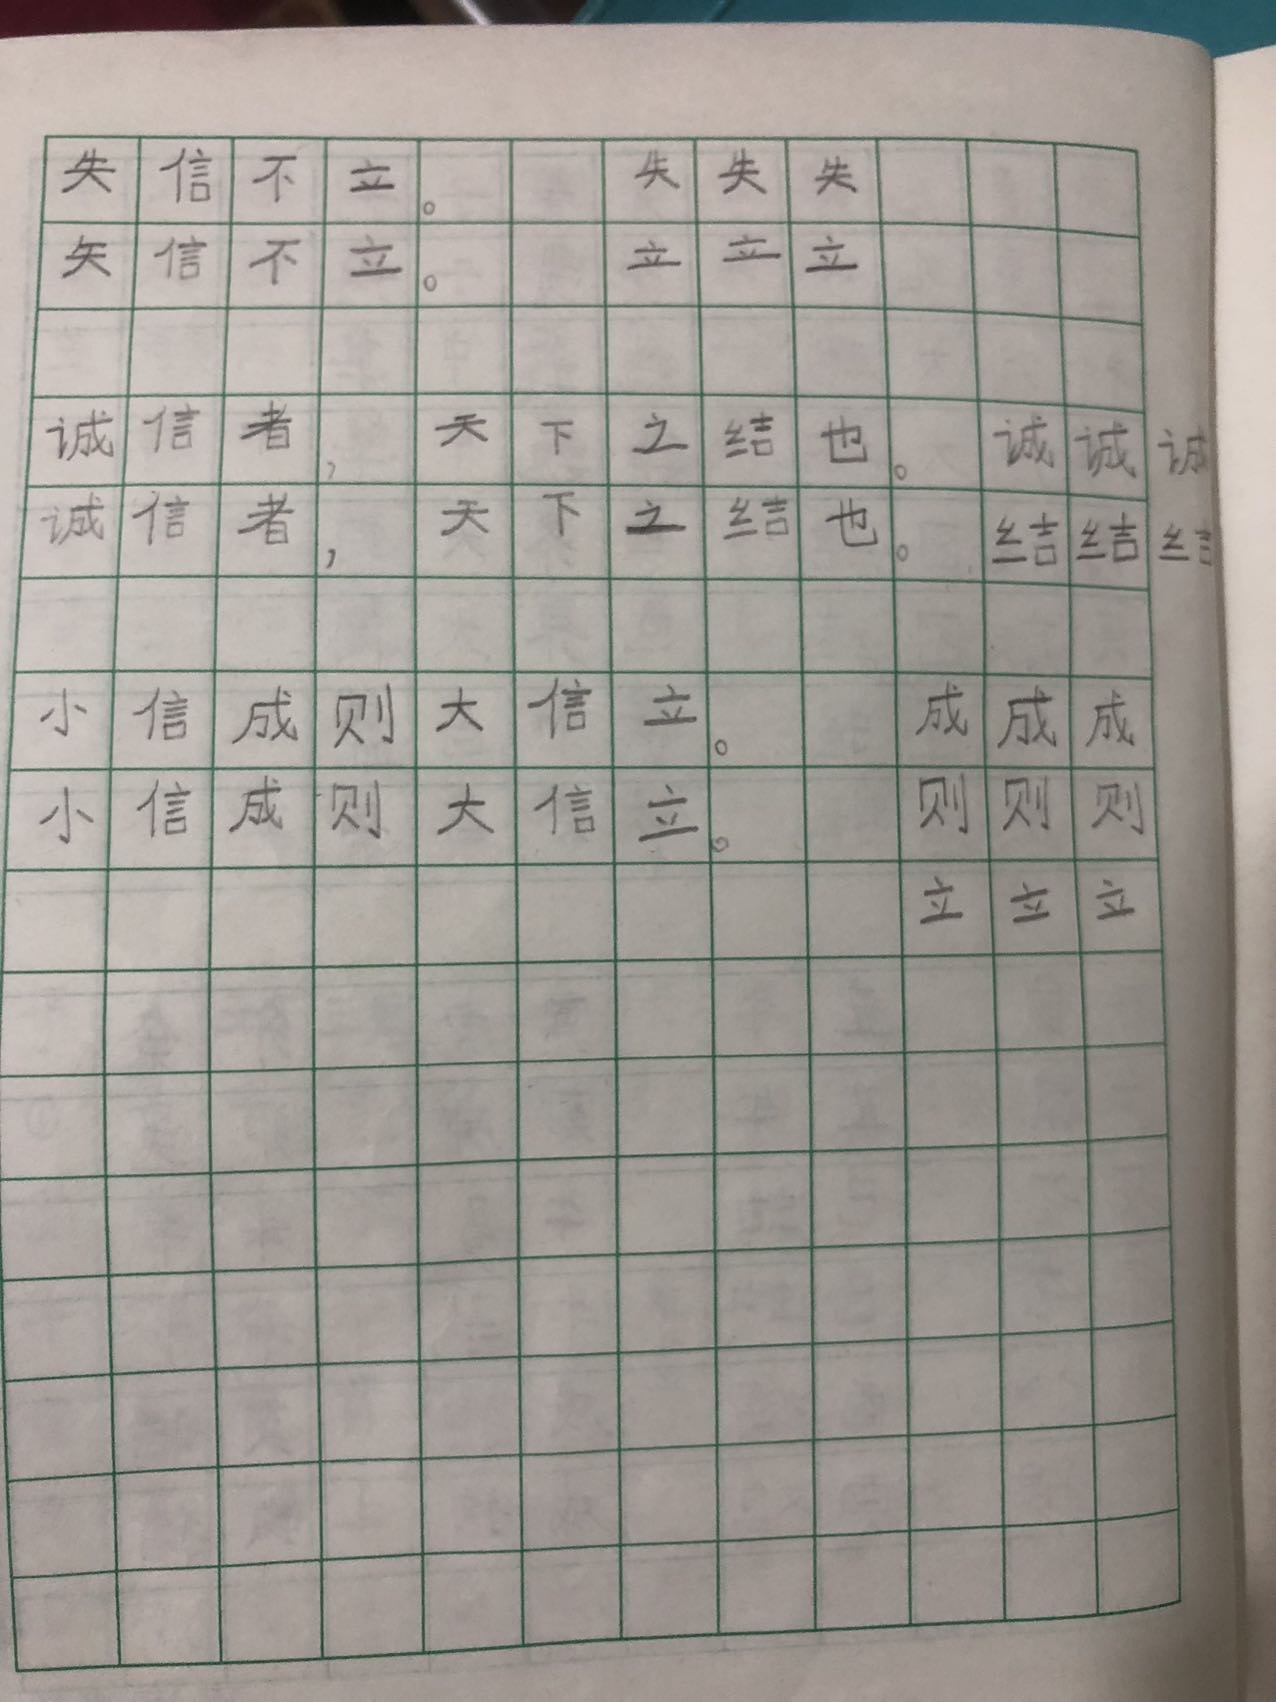 失信不立。 失失失
矢信不立。 立立立
诚信者， 天下之结也。 诚诚诚
诚信者， 天下之结也。 结结结
小信成则大信立。 成成成
小信成则大信立。 则则则
立立立